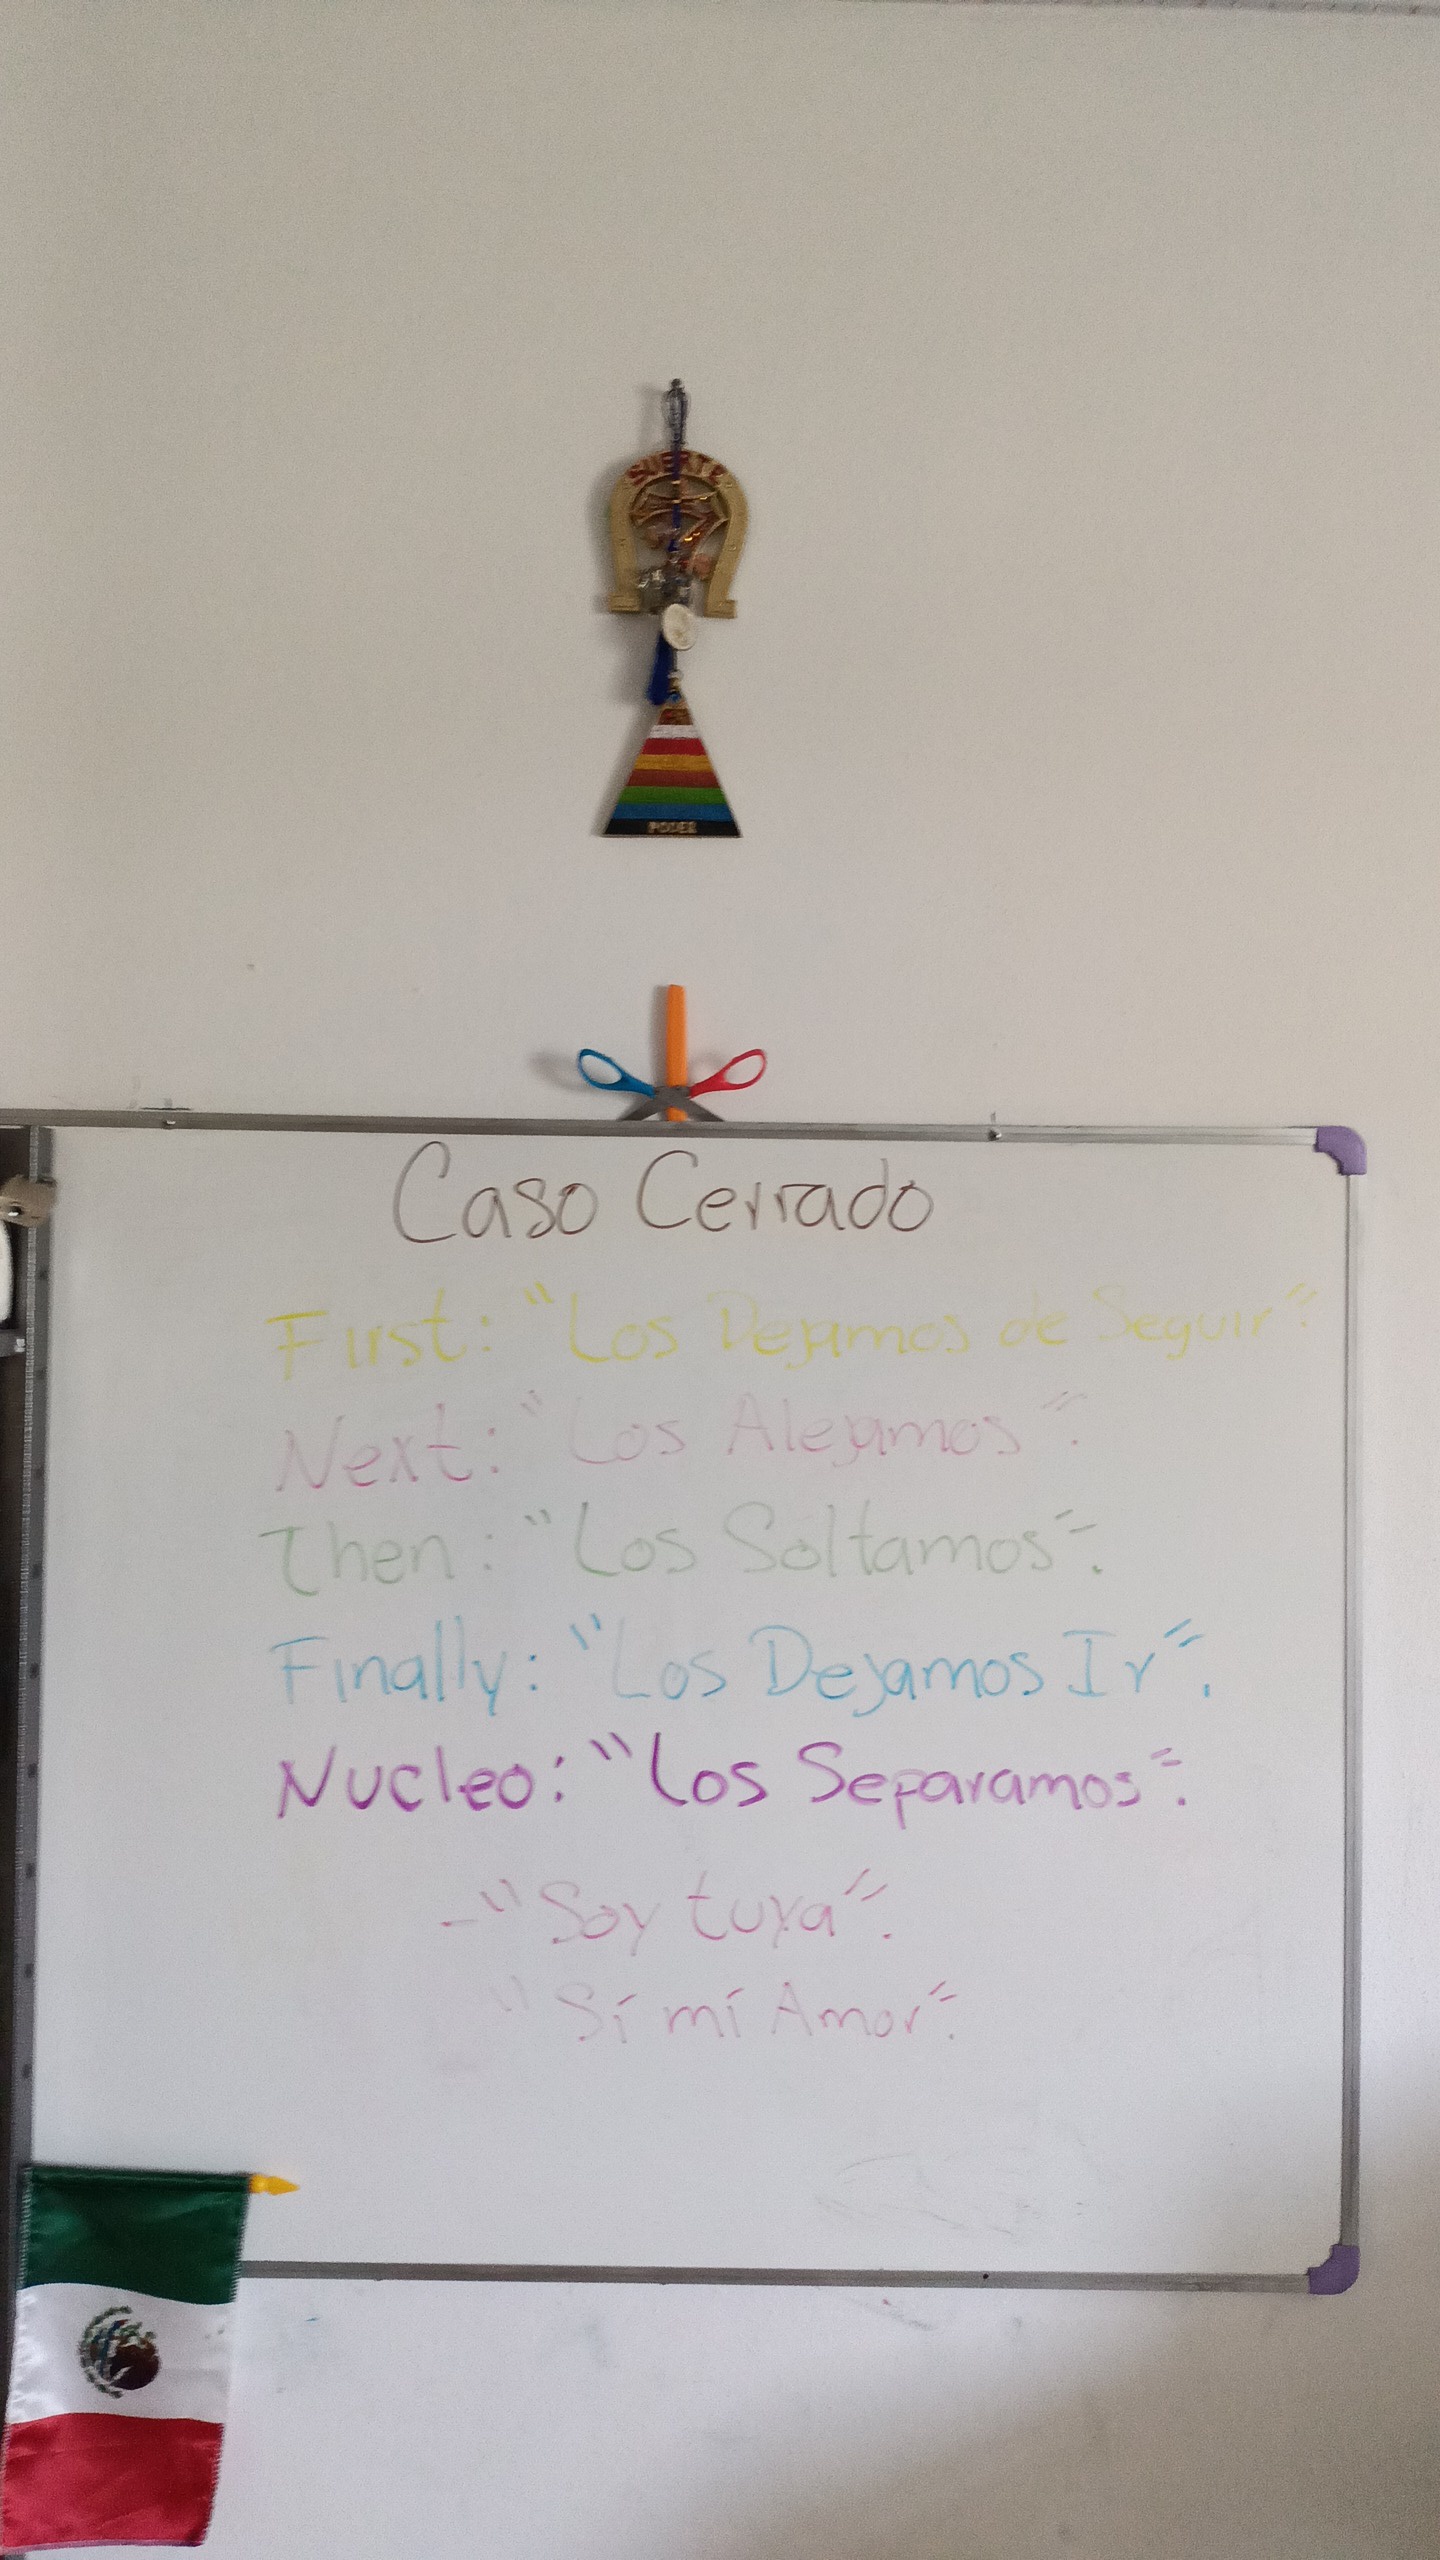 SUERTE
PODER
Caso Cerrado
First: "Los Dejamos de Seguir".
Next: "Los Alejamos".
Then: "Los Soltamos".
Finally: "Los Dejamos Ir".
Nucleo: "Los Separamos".
- "Soy tuya".
"Sí mí Amor".